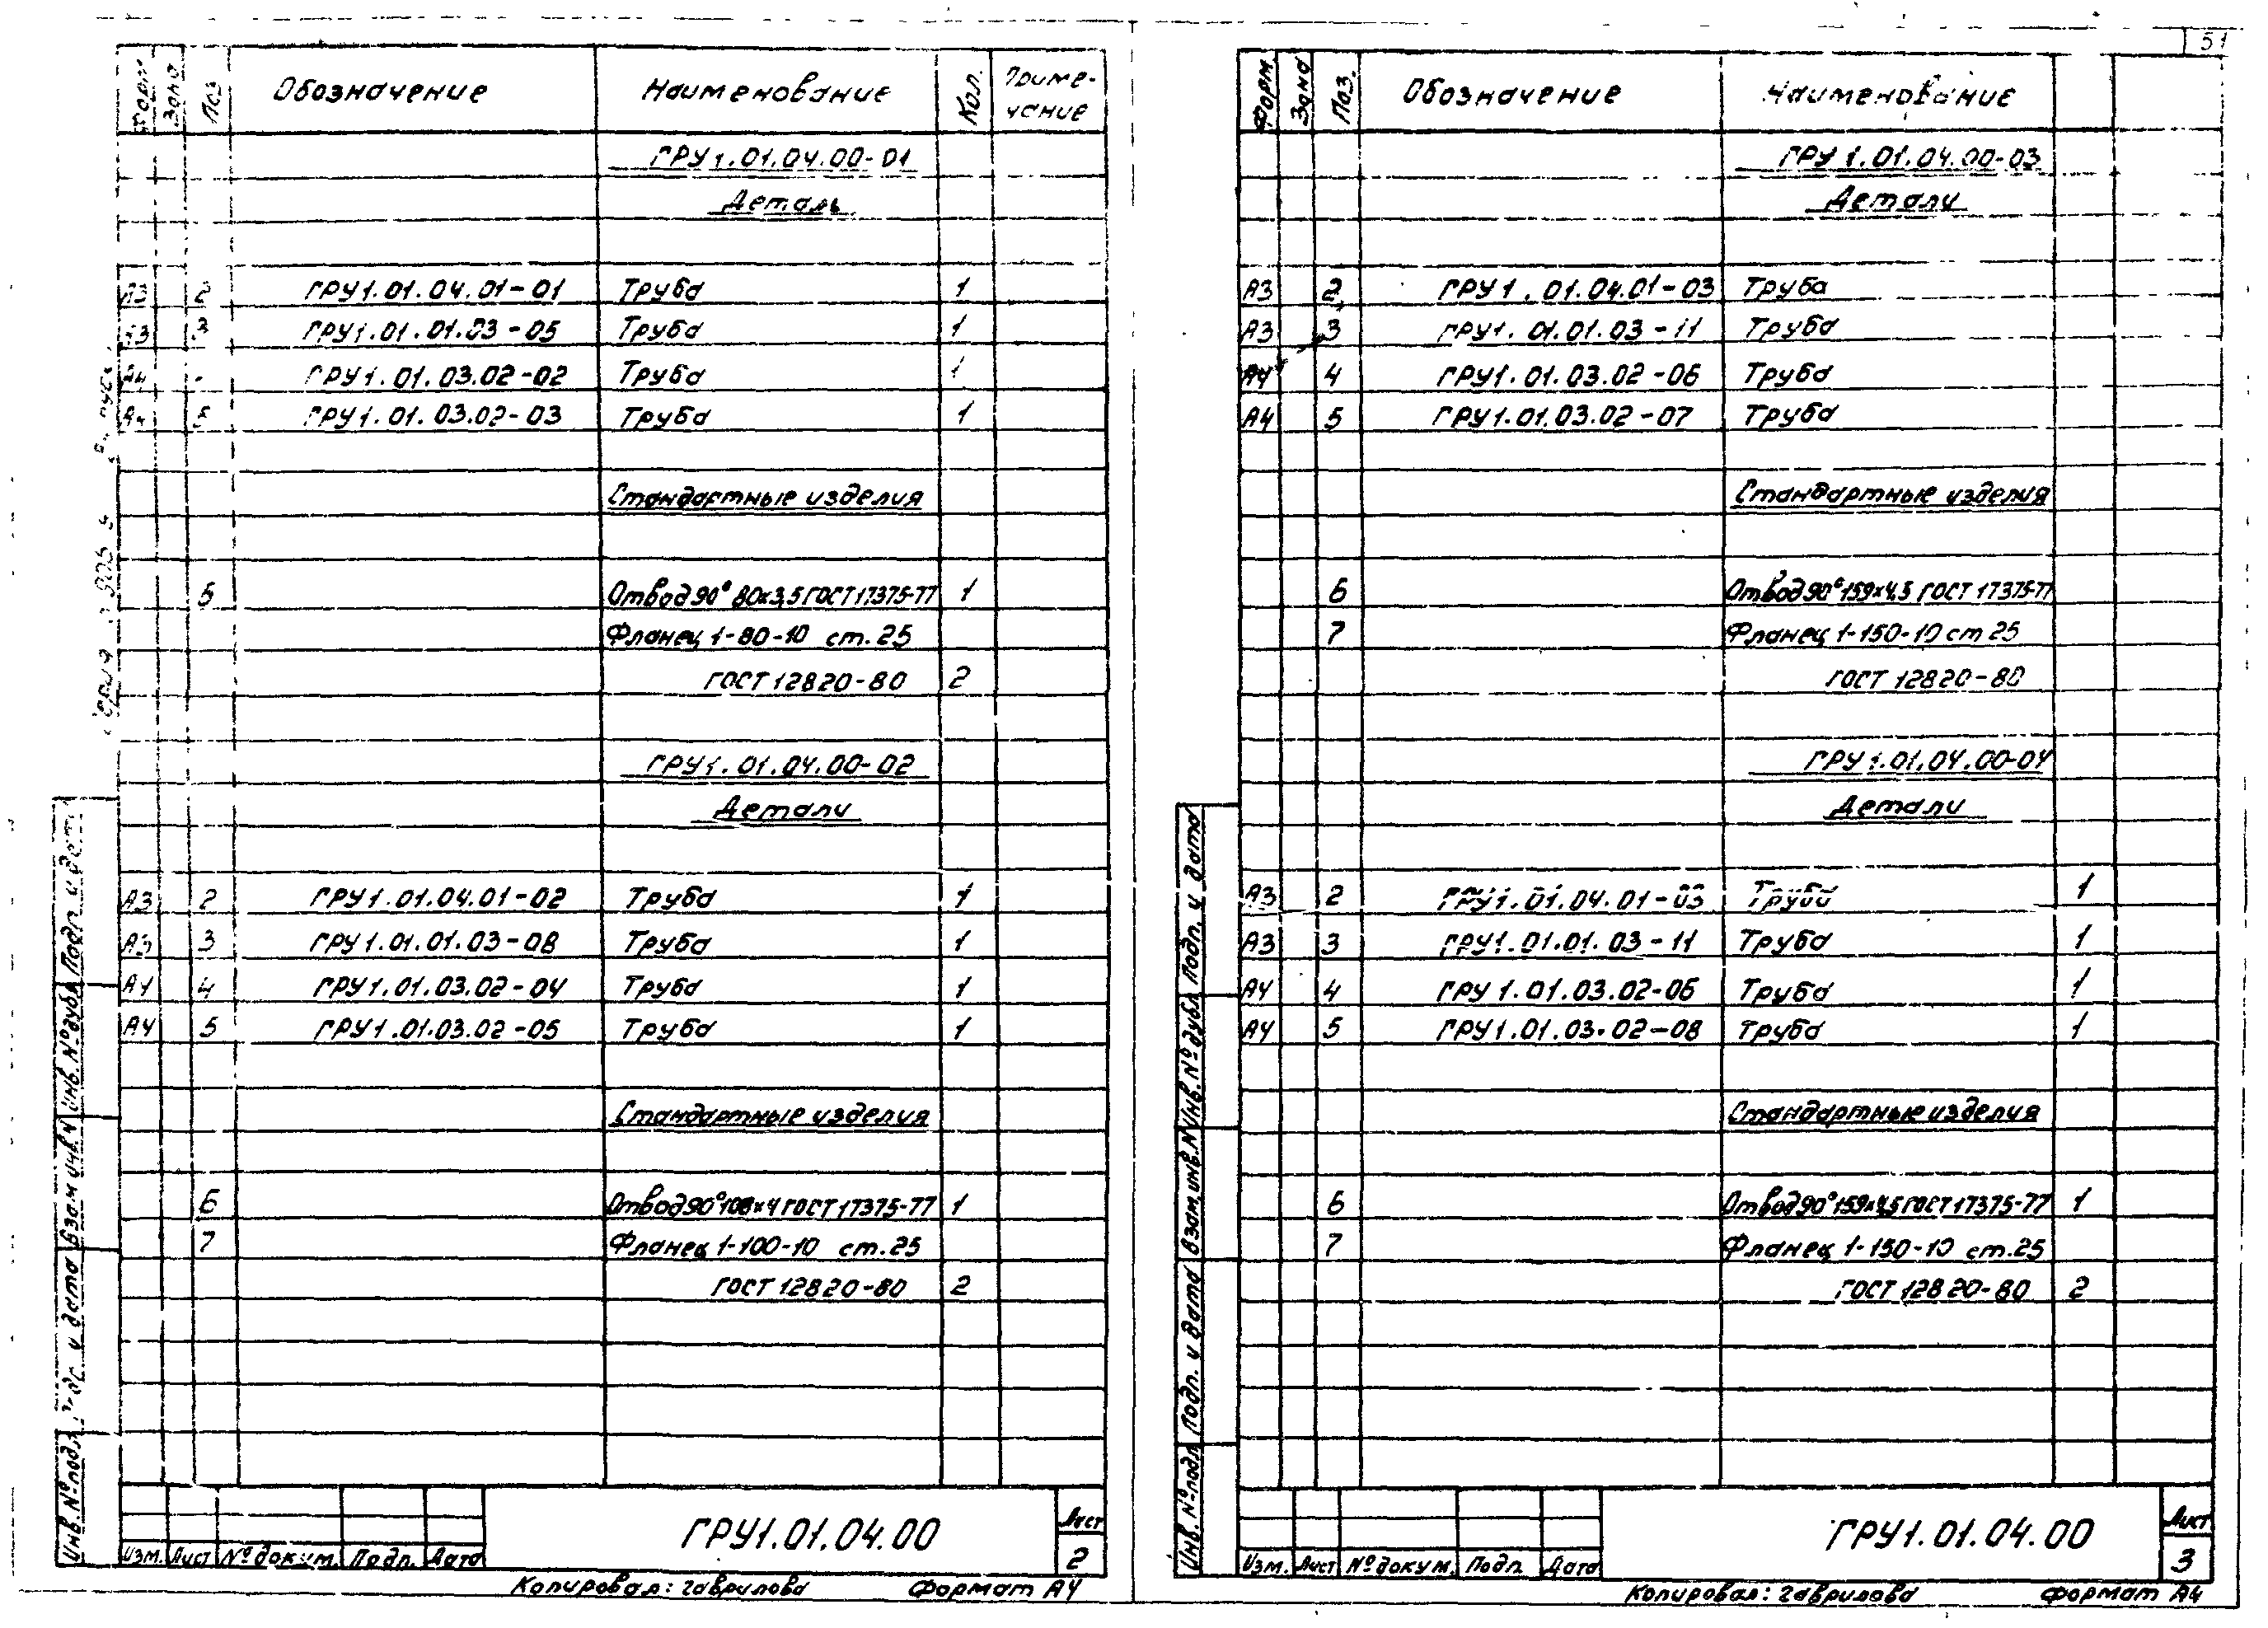 Форм. Зона Поз. Обозначение Наименование Кол. Приме-
чание
ГРУ1.01.04.00-01
Деталь
А3 2 ГРУ1.01.04.01-01 Труба 1
А3 3 ГРУ1.01.01.03-05 Труба 1
А4 ГРУ1.01.03.02-02 Труба 1
А4 5 ГРУ1.01.03.02-03 Труба 1
Стандартные изделия
6 Отвод 90° 80х3,5 ГОСТ 17375-77 1
Фланец 1-80-10 ст.25
ГОСТ 12820-80 2
ГРУ1.01.04.00-02
Детали
А3 2 ГРУ1.01.04.01-02 Труба 1
А3 3 ГРУ1.01.01.03-08 Труба 1
А4 4 ГРУ1.01.03.02-04 Труба 1
А4 5 ГРУ1.01.03.02-05 Труба 1
Стандартные изделия
6 Отвод 90° 108х4 ГОСТ 17375-77 1
7 Фланец 1-100-10 ст.25
ГОСТ 12820-80 2
Инв. № подл. Подп. и дата Взам. инв. № Инв. № дубл. Подп. и дата
Изм. Лист № докум. Подп. Дата
ГРУ1.01.04.00
Лист
2
Копировал: Гаврилова Формат А4
51
Форм. Зона Поз. Обозначение Наименование
ГРУ1.01.04.00-03
Детали
А3 2 ГРУ1.01.04.01-03 Труба
А3 3 ГРУ1.01.01.03-11 Труба
А4 4 ГРУ1.01.03.02-06 Труба
А4 5 ГРУ1.01.03.02-07 Труба
Стандартные изделия
6 Отвод 90° 159х4,5 ГОСТ 17375-77
7 Фланец 1-150-10 ст 25
ГОСТ 12820-80
ГРУ1.01.04.00-04
Детали
А3 2 ГРУ1.01.04.01-03 Труба 1
А3 3 ГРУ1.01.01.03-11 Труба 1
А4 4 ГРУ1.01.03.02-06 Труба 1
А4 5 ГРУ1.01.03.02-08 Труба 1
Стандартные изделия
6 Отвод 90° 159х4,5 ГОСТ 17375-77 1
7 Фланец 1-150-10 ст.25
ГОСТ 12820-80 2
Инв. № подл. Подп. и дата Взам. инв. № Инв. № дубл. Подп. и дата
Изм. Лист № докум. Подп. Дата
ГРУ1.01.04.00
Лист
3
Копировал: Гаврилова Формат А4